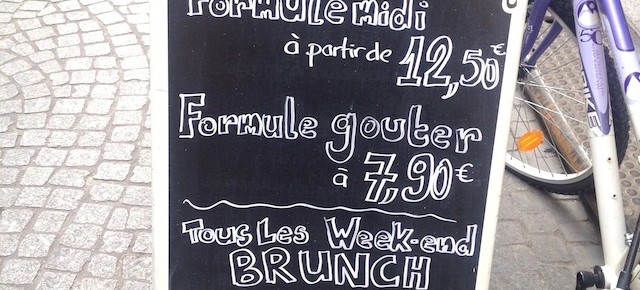 Formule midi
à partir de 12,50€
Formule gouter
à 7,90€
Tous Les Week-end
BRUNCH